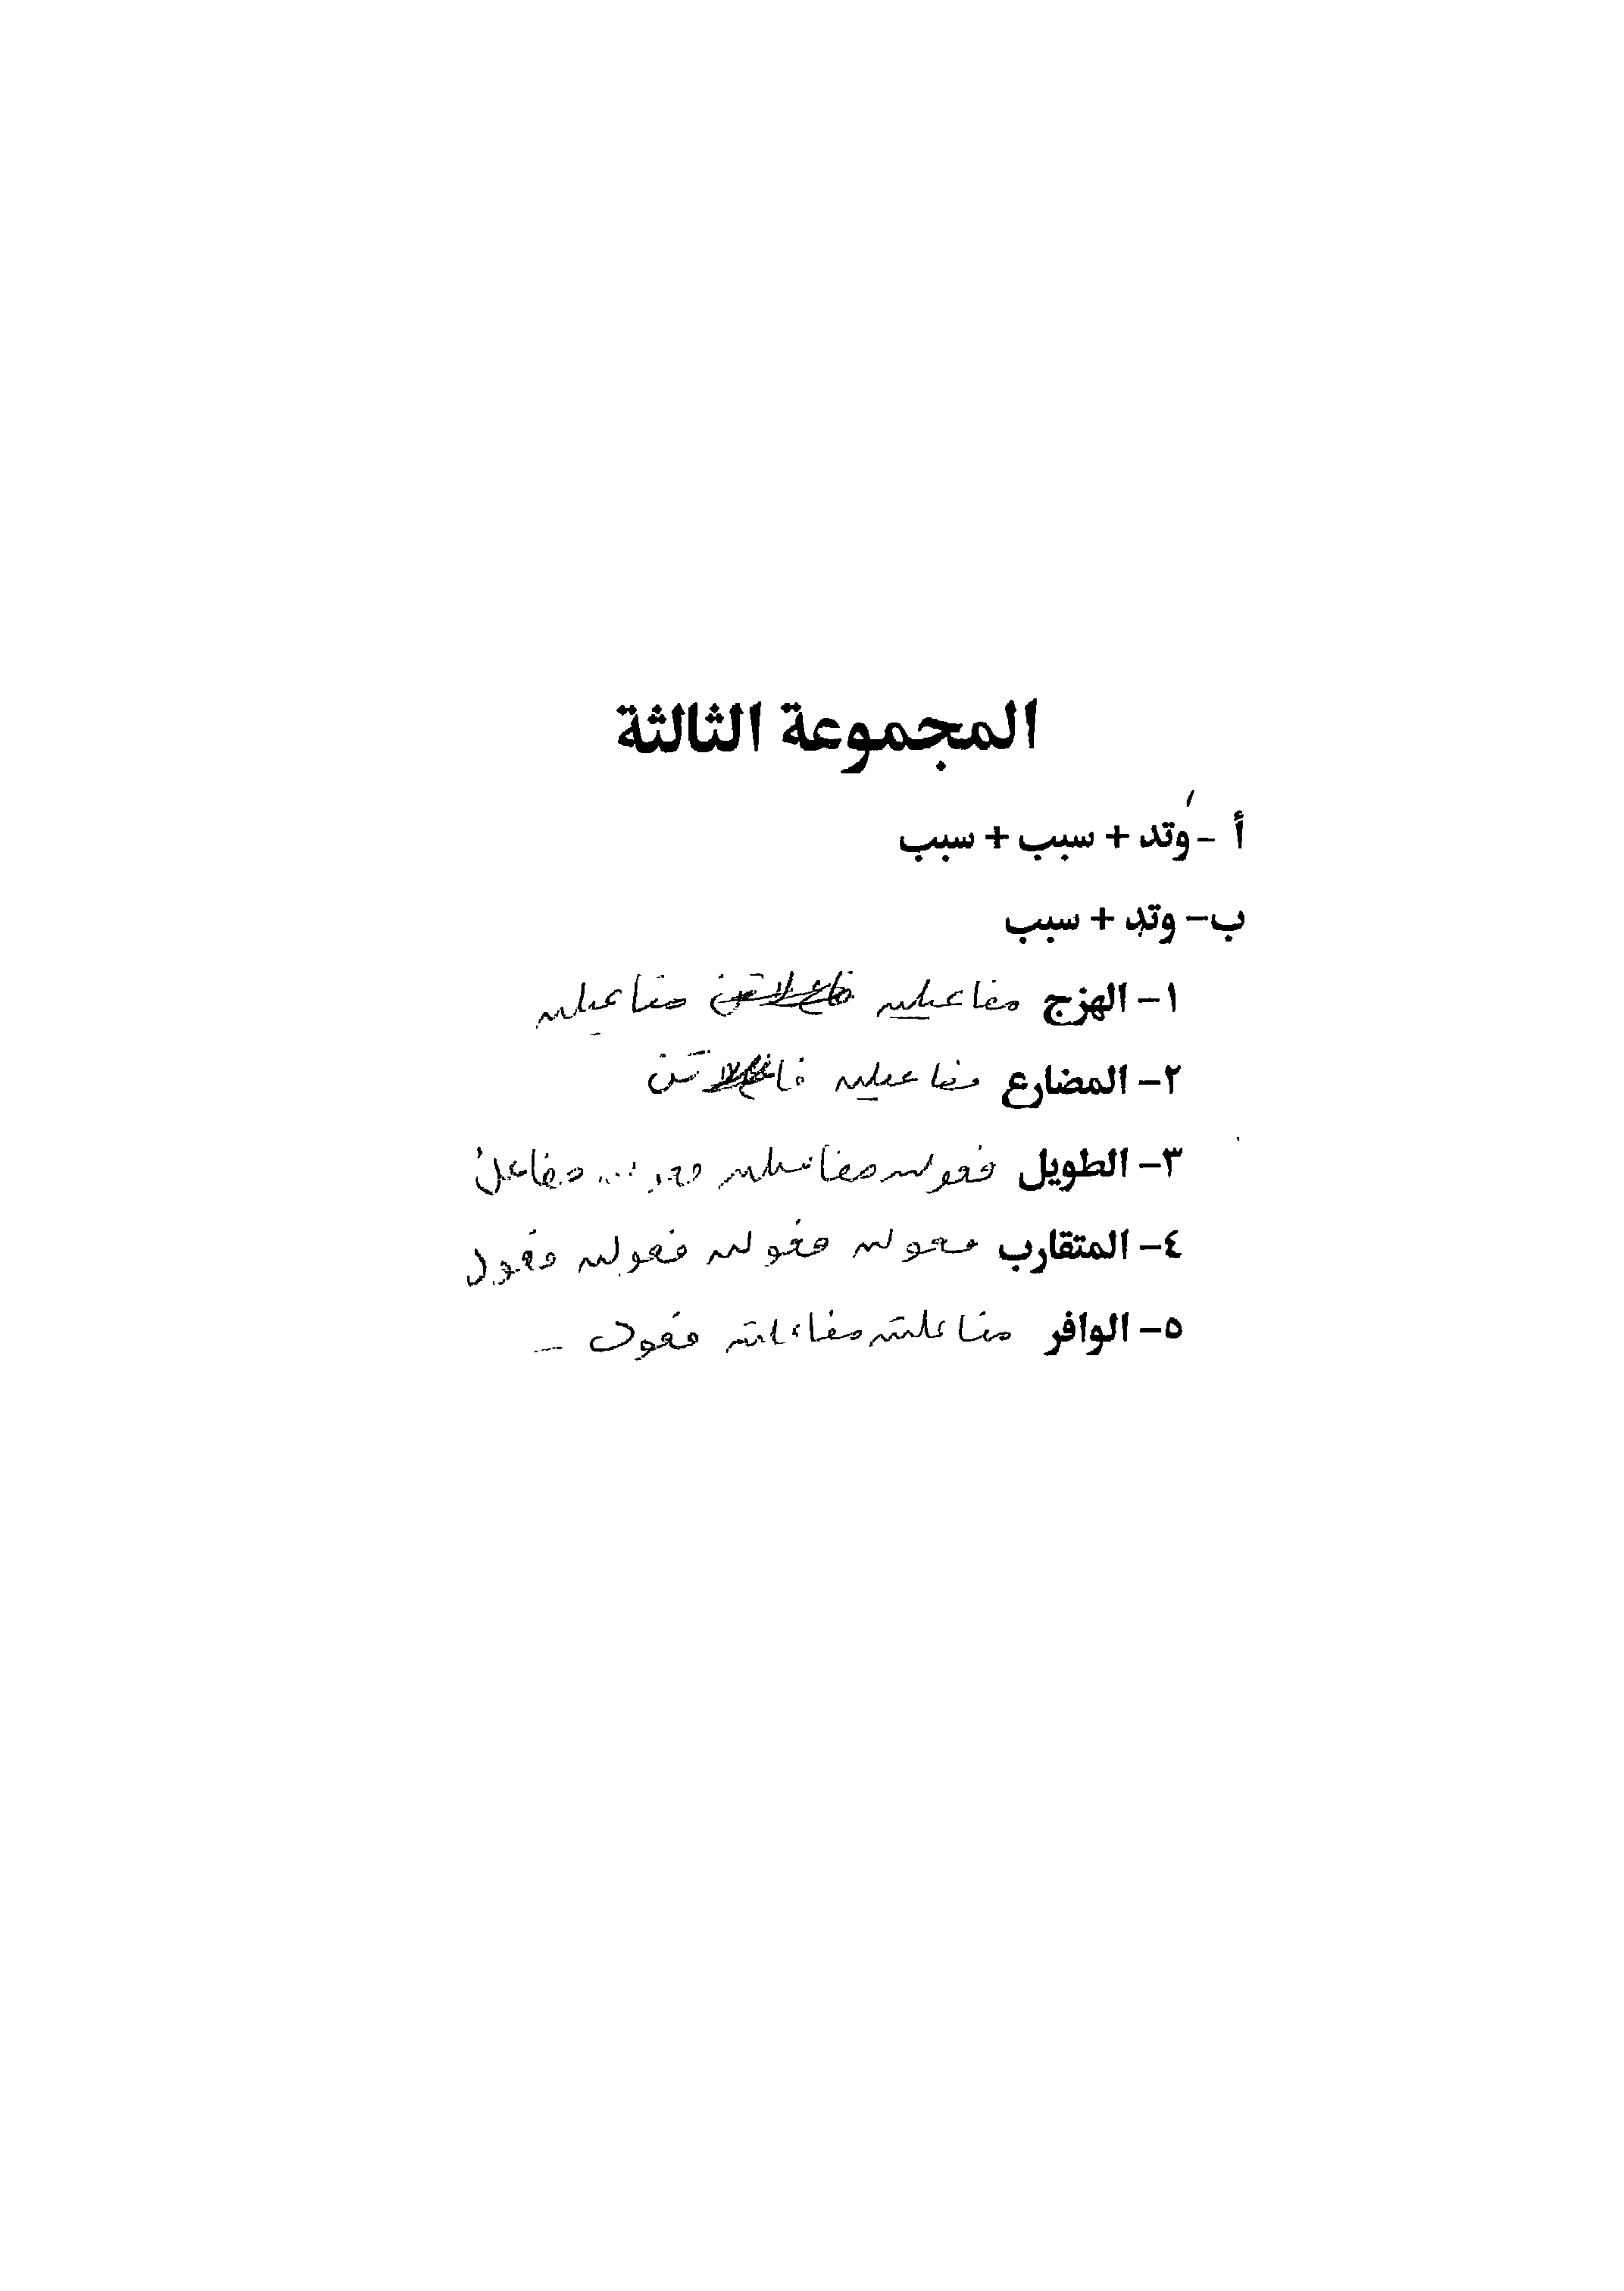 المجموعة الثالثة
أ - وتد + سبب + سبب
ب- وتد + سبب
١- الهزج مفاعيلن مفاعيلن
٢- المضارع مفاعيلن
٣- الطويل فعولن مفاعيلن فعولن مفاعلن
٤- المتقارب فعولن فعولن فعولن فعول
٥- الوافر مفاعلتن مفاعلتن فعول